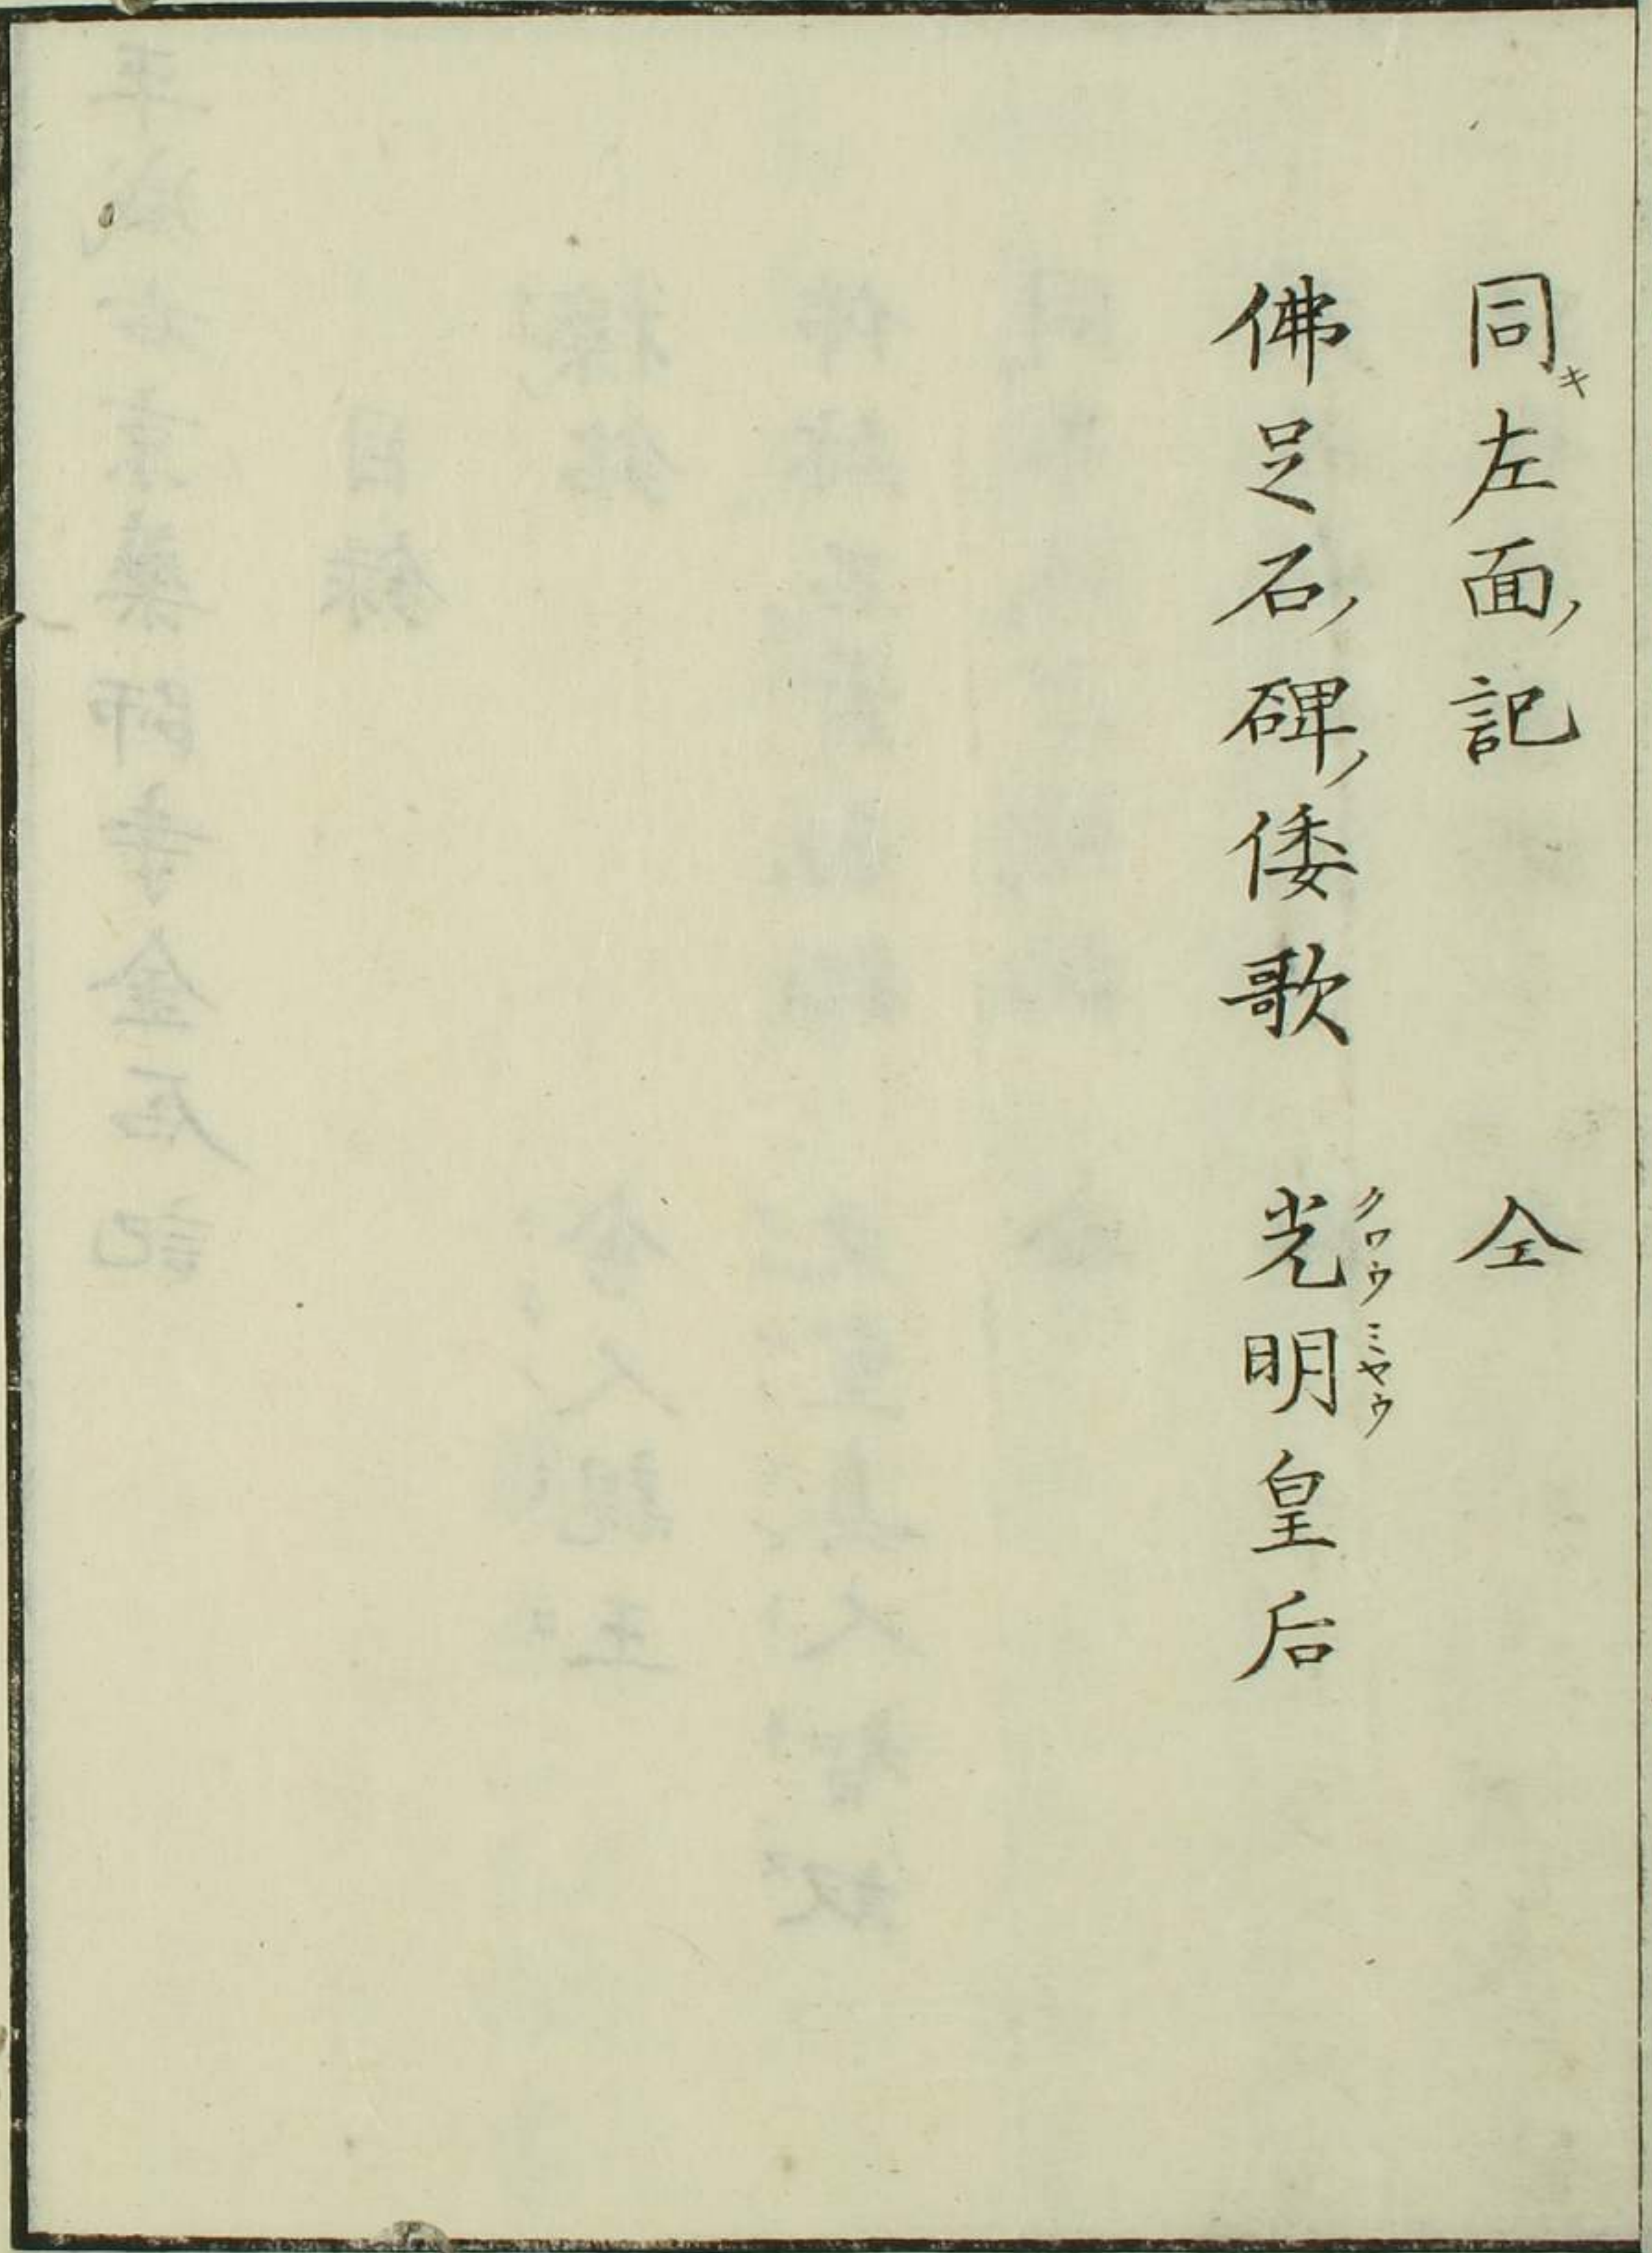 同キ左面ノ記　仝
佛足石ノ碑ノ倭歌　光明皇后
クワウミヤウ